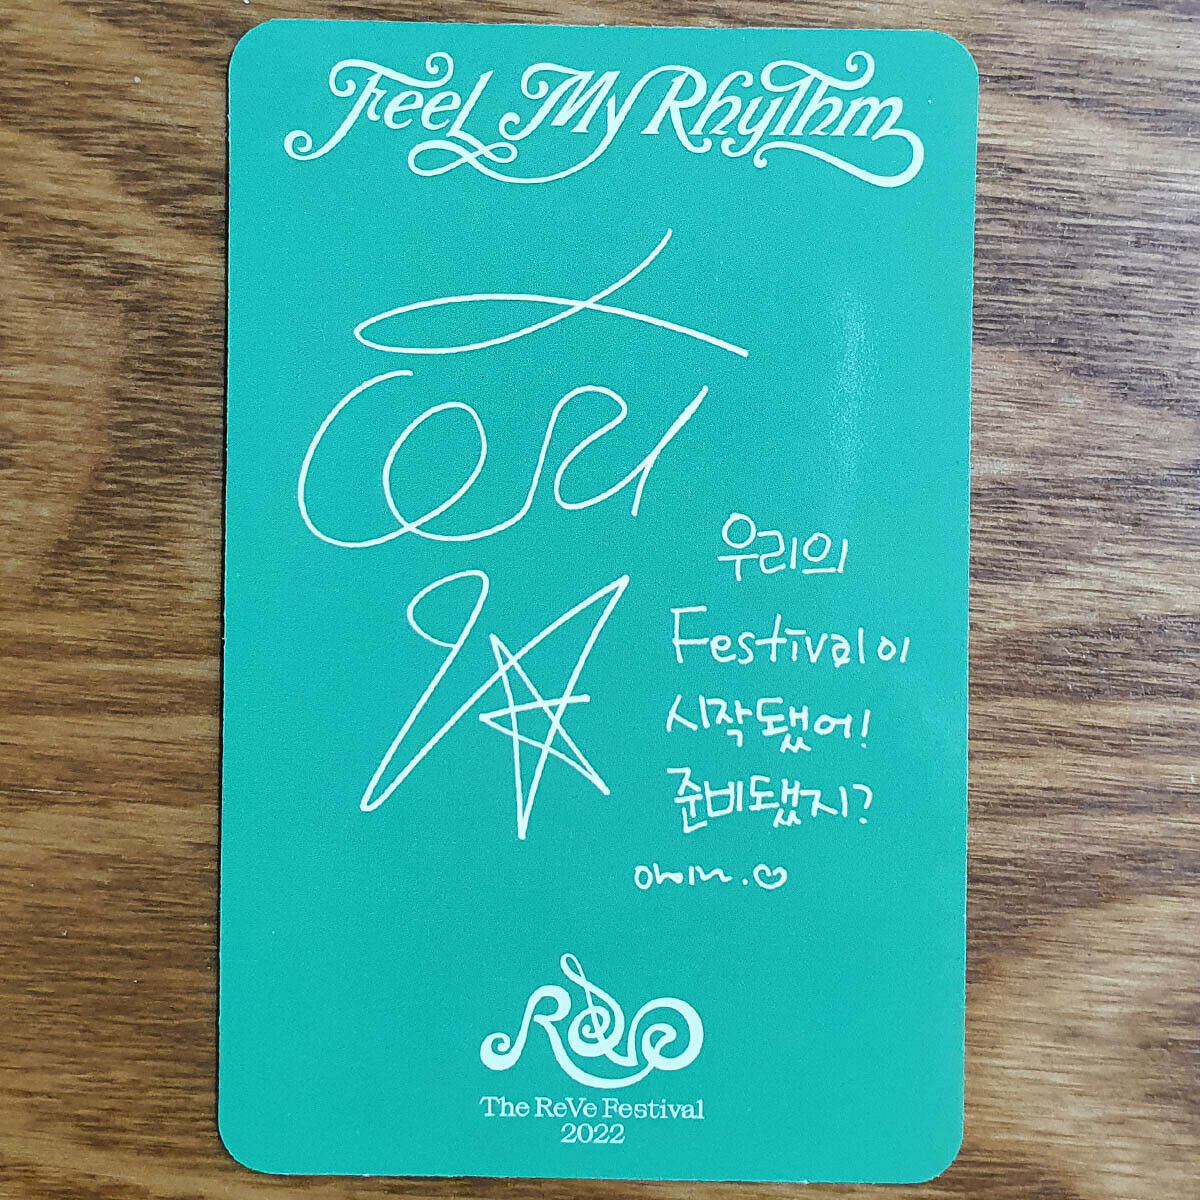 Feel My Rhythm
우리의
Festival이
시작됐어!
준비됐지?
ReVe
The ReVe Festival
2022